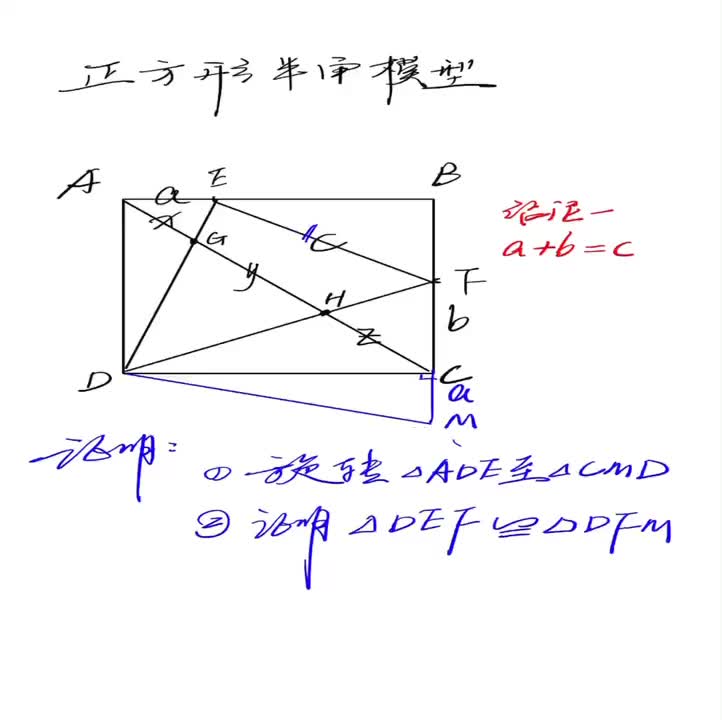 正方形半角模型
A a E B
x G C
结论一
a+b=c
y H F
z b
D C
a
M
证明：
① 旋转△ADE至△CMD
② 证明△DEF≌△DFM